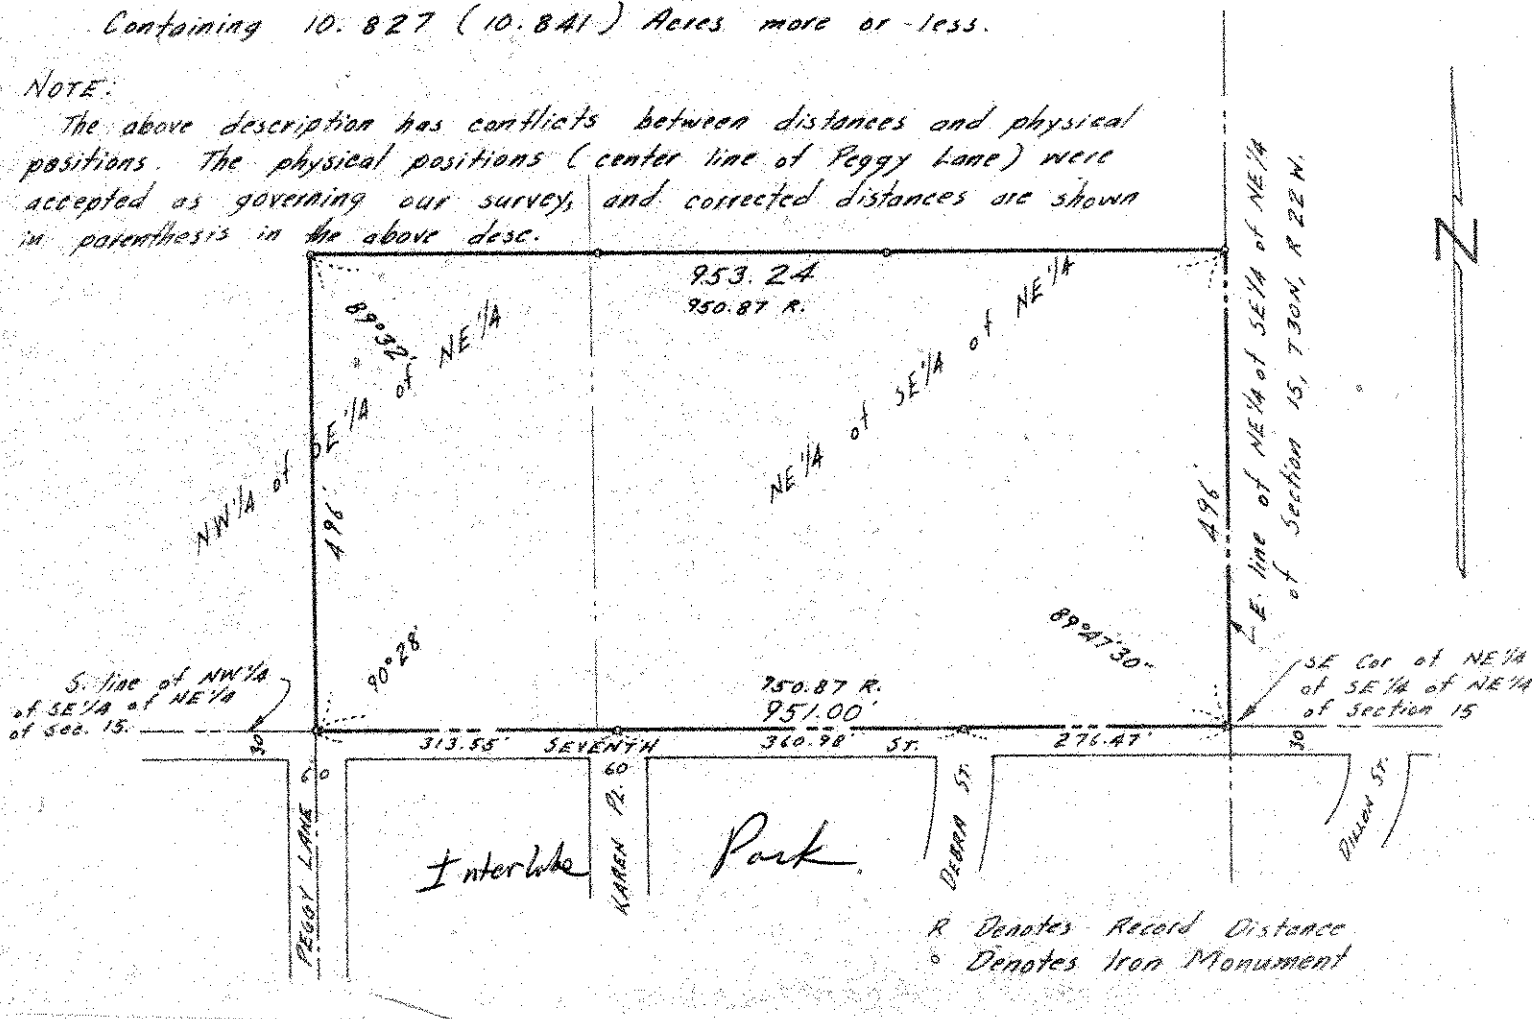 Containing 10.827 (10.841) Acres more or less.
NOTE:
The above description has conflicts between distances and physical
positions. The physical positions (center line of Peggy Lane) were
accepted as governing our survey, and corrected distances are shown
in parenthesis in the above desc.
953.24
950.87 R.
89°32'
NW 1/4 of SE 1/4 of NE 1/4
NE 1/4 of SE 1/4 of NE 1/4
496'
496'
E. line of NE 1/4 of SE 1/4 of NE 1/4
of Section 15, T30N, R22W.
N
90°28'
89°47'30"
S. line of NW 1/4
of SE 1/4 of NE 1/4
of Sec. 15.
SE Cor of NE 1/4
of SE 1/4 of NE 1/4
of Section 15
950.87 R.
951.00'
30
313.55' SEVENTH 360.98' ST. 276.47'
30
60
60
PEGGY LANE
KAREN PL.
DEBRA ST.
DILLON ST.
Interlake Park
R Denotes Record Distance
o Denotes Iron Monument